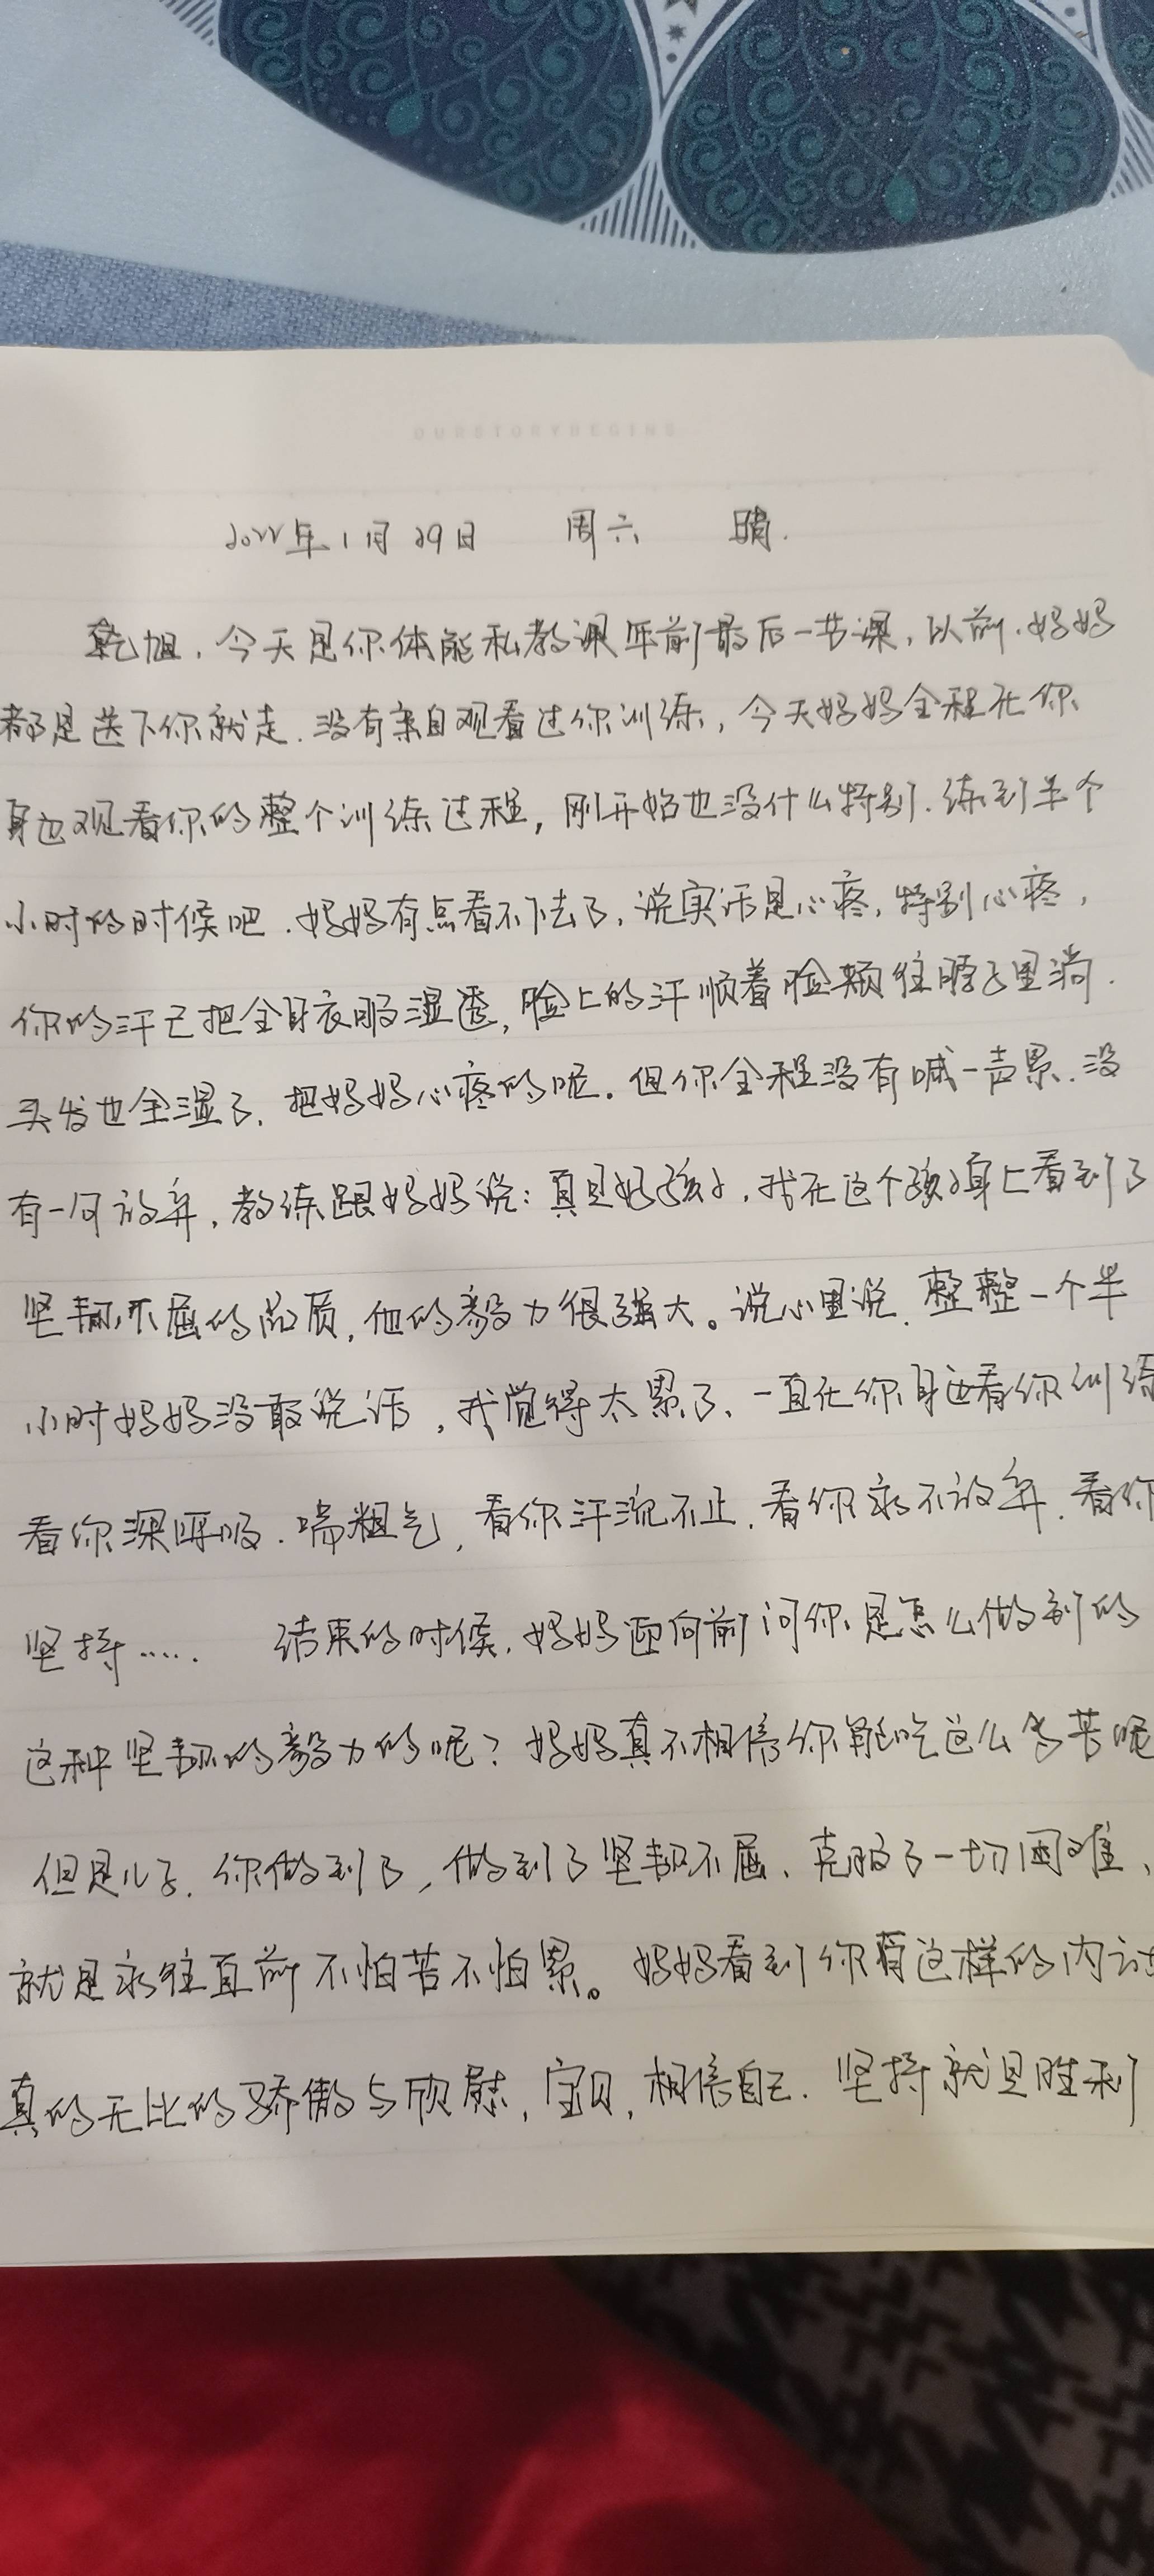 OURSTORYBEGINS
2022年1月29日 周六 晴.
乾旭,今天是你体能私教课年前最后一节课,以前.妈妈
都是送下你就走.没有亲自观看过你训练,今天妈妈全程在你
身边观看你的整个训练过程,刚开始也没什么特别.练到半个
小时的时候吧.妈妈有点看不下去了,说实话是心疼,特别心疼,
你的汗已把全身衣服湿透,脸上的汗顺着脸颊往脖子里淌.
头发也全湿了,把妈妈心疼的呢。但你全程没有喊一声累.没
有一句放弃,教练跟妈妈说:真是好孩子,我在这个孩子身上看到了
坚韧不屈的品质,他的毅力很强大。说心里说.整整一个半
小时妈妈没敢说话,我觉得太累了、一直在你身边看你训练
看你深呼吸.喘粗气,看你汗流不止.看你永不放弃.看你
坚持..... 结束的时候,妈妈面向前问你是怎么做到的
这种坚韧的毅力的呢?妈妈真不相信你能吃这么多苦呢
但是儿子.你做到了,做到了坚韧不屈、克服了一切困难、
就是永往直前不怕苦不怕累。妈妈看到你有这样的内
真的无比的骄傲与欣慰,宝贝,相信自己.坚持就是胜利